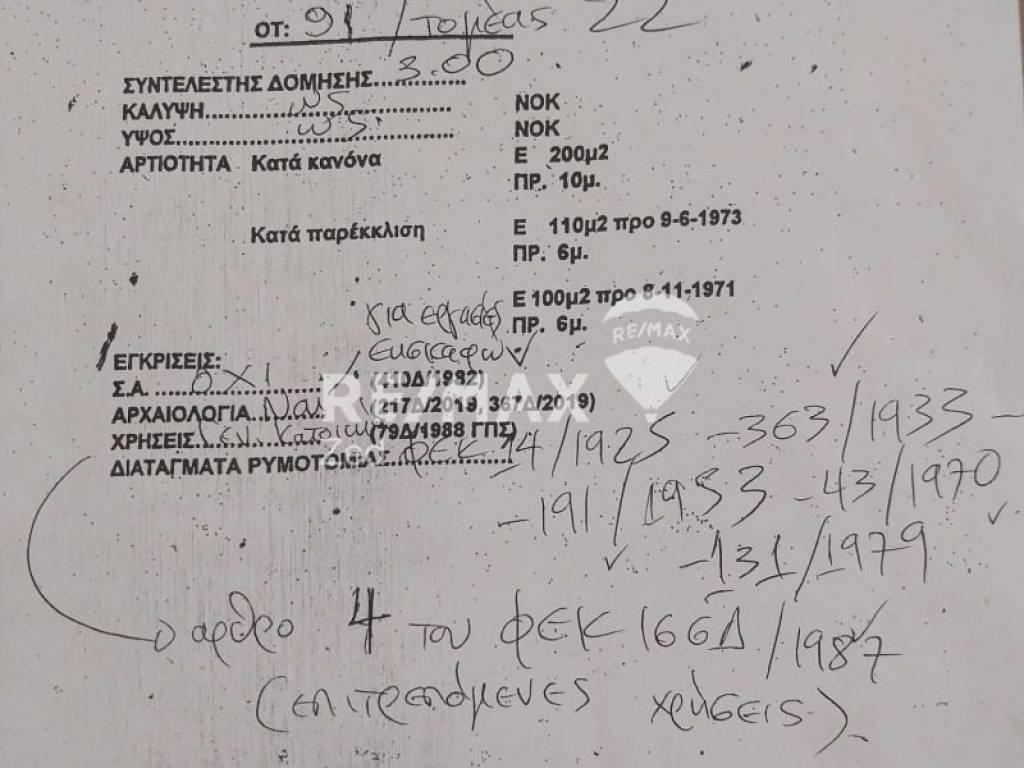 ΟΤ: 91 / τομέας 22
ΣΥΝΤΕΛΕΣΤΗΣ ΔΟΜΗΣΗΣ...3.00...
ΚΑΛΥΨΗ... ΝΟΚ
ΥΨΟΣ... ΝΟΚ
ΑΡΤΙΟΤΗΤΑ Κατά κανόνα Ε 200μ2
ΠΡ. 10μ.
Κατά παρέκκλιση Ε 110μ2 προ 9-6-1973
ΠΡ. 6μ.
Ε 100μ2 προ 8-11-1971
για εργασίες ΠΡ. 6μ.
εκσκαφών
RE/MAX
ΕΓΚΡΙΣΕΙΣ:
Σ.Α. ...ΟΧΙ... (410Δ/1982)
RE/MAX
ΑΡΧΑΙΟΛΟΓΙΑ...Ναι (217Δ/2019, 367Δ/2019)
ΧΡΗΣΕΙΣ Γεν. Κατοικία (79Δ/1988 ΓΠΣ)
ΔΙΑΤΑΓΜΑΤΑ ΡΥΜΟΤΟΜΙΑΣ...ΦΕΚ 14/1925 - 363/1933 -
- 191/1953 - 43/1970
- 131/1979
ο αρθρο 4 του ΦΕΚ 166Δ/1987
(επιτρεπόμενες χρήσεις)